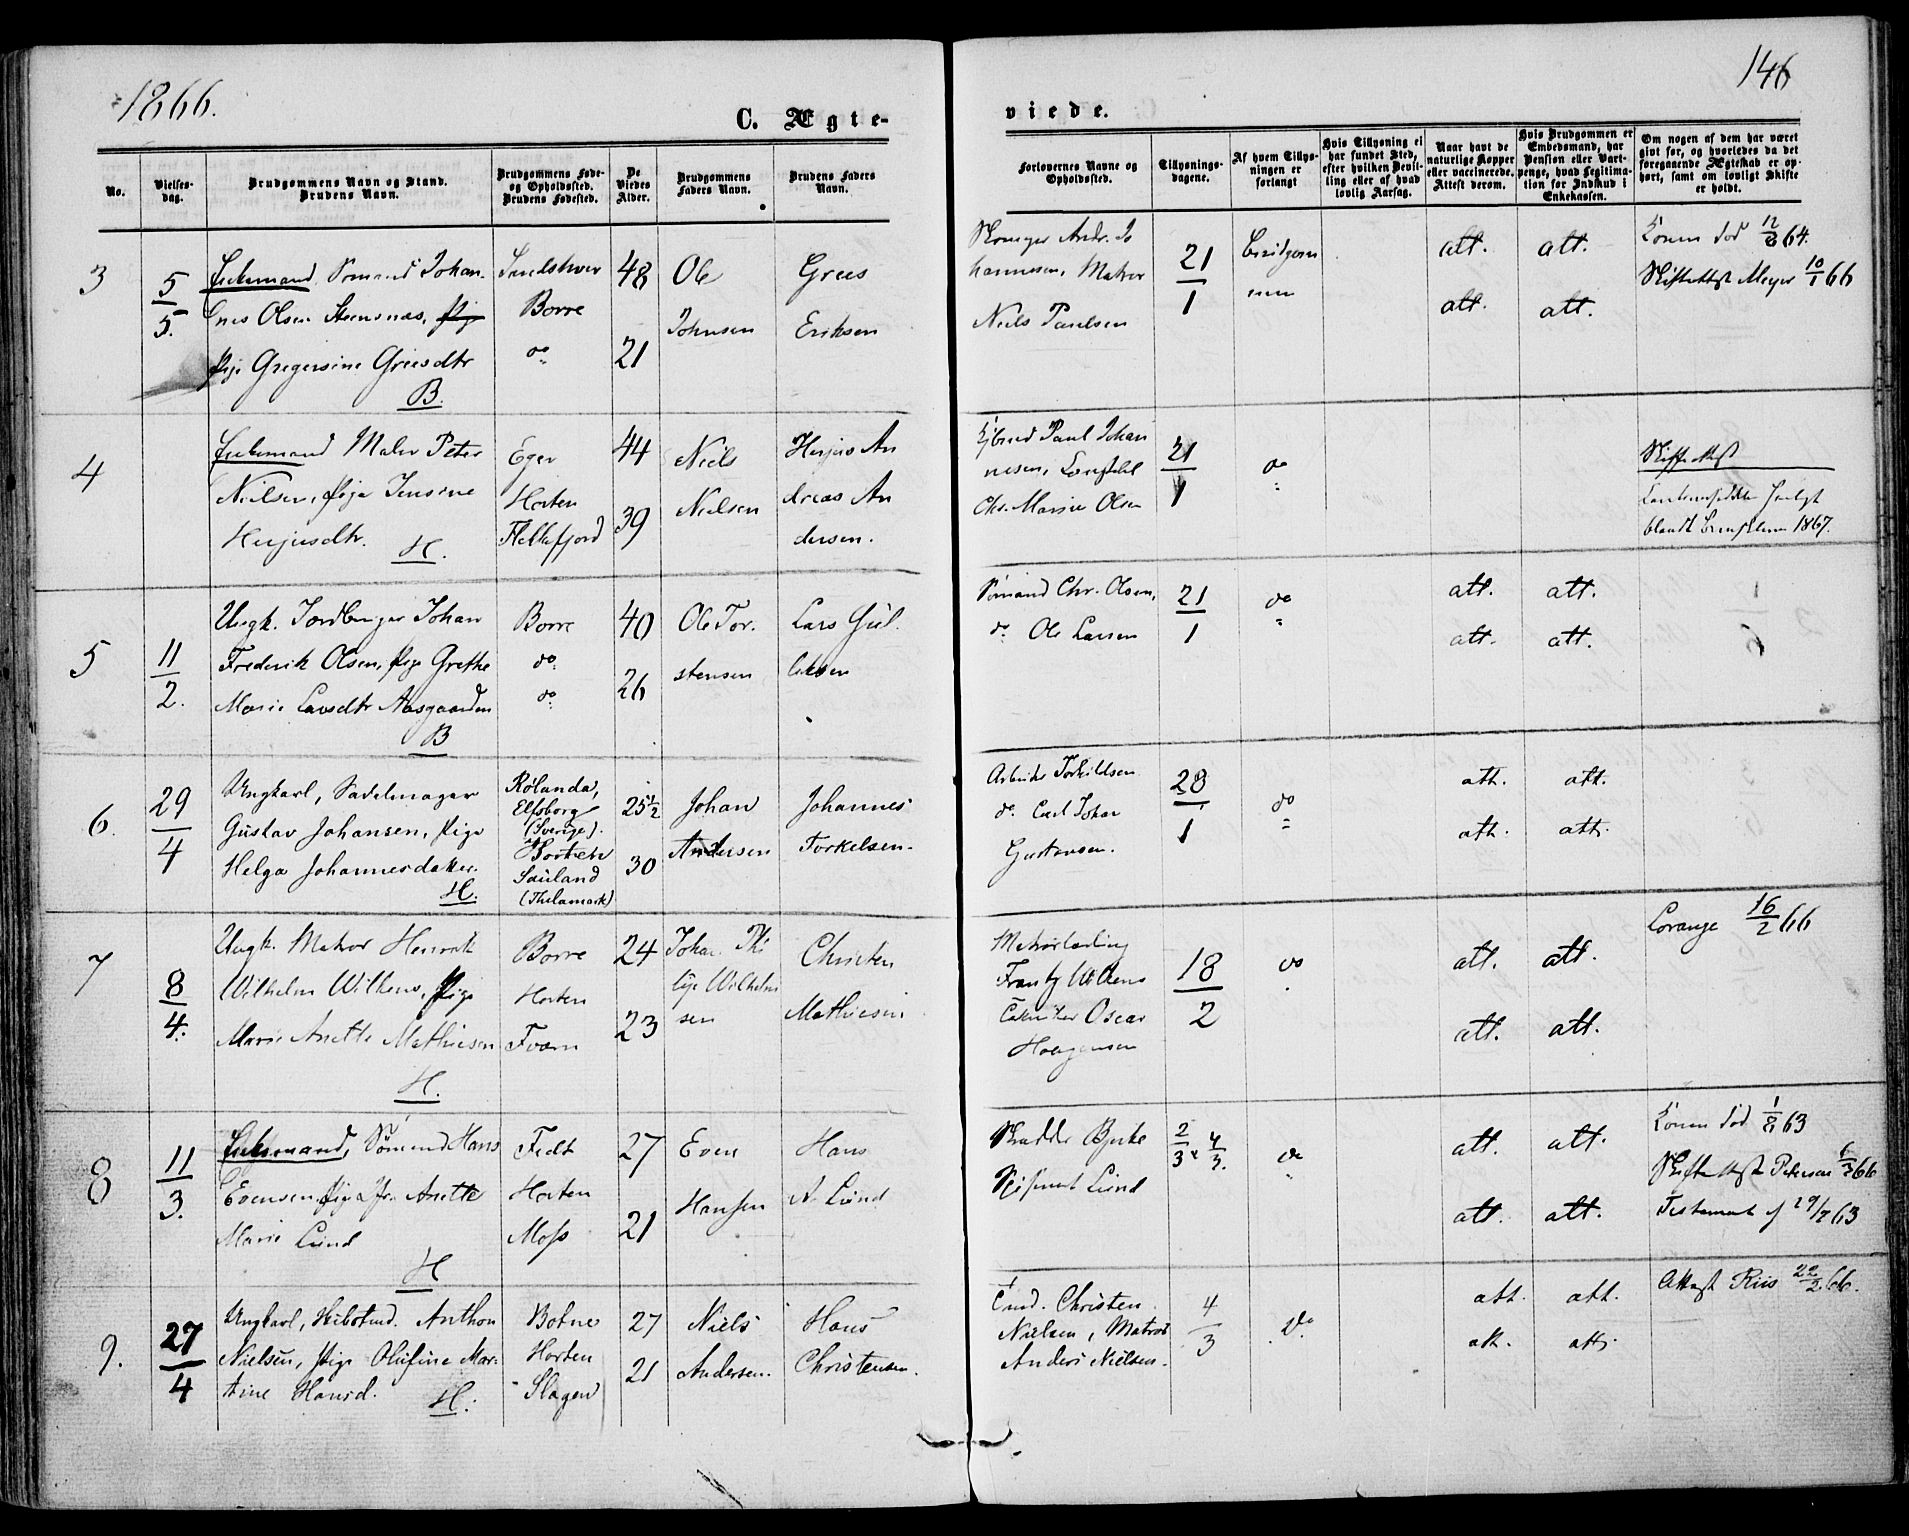 1866.
146
C. Ægte-
viede.
No.
Vielses-
dag.
Brudgommens Navn og Stand.
Brudens Navn.
Brudgommens Føde-
og Opholdssted.
Brudens Fødested.
De
Viedes
Alder.
Brudgommens
Faders Navn.
Brudens Faders
Navn.
Forlovernes Navne og
Opholdssted.
Tillysnings-
dagene.
Af hvem Tillys-
ningen er
forlangt
Hvis Tillysning ei
har fundet Sted,
efter hvilken Bevil-
ling eller af hvad
lovlig Aarsag.
Naar havt de
naturlige Kopper
eller vaccinerede.
Attest derom.
Hvis Brudgommen er
Embedsmand, har
Pension eller Vart-
penge, hvad Legitima-
tion for Indskud i
Enkekassen.
Om nogen af dem har været
givt før, og hvorledes da det
foregaaende Ægteskab er op-
hørt, samt om lovligt Skifte
er holdt.
3
5/5.
Enkemand Sømand Johan-
Olsen pige
Pige Gregersine Greesdtr
B.
Borre
do
48
21
Ole
Johnsen
Grees
Eriksen
hannesen, Matros
Niels Paulsen
21/1
att. att.
att. att.
Konen død 12/8 64.
Skifteattest Meyer 10/1 66
4
Enkemand Maler Peter
Nielsen, Pige Jensine
H.
Eger
Horten
Flekkefjord
44
39
Niels
Nielsen
An
dreas An
dersen.
Paul Johan
nesen,
Chr. Marius Olsen
21/1
do
Skifteattest
blandt 1867.
5
11/2.
Ungk. Johan
Frederik Olsen, Pige Grethe
Marie Larsdtr Aasgaarden
B
Borre
do
do
40
26
Ole Tor.
stensen
Lars Gul.
liksen
Sømand Chr. Olsen,
do Ole Larsen
21/1
do
att. att.
att. att.
6.
29/4
Ungkarl, Sadelmager
Gustav Johansen, Pige
Helga Johannesdatter.
H.
Rølanda,
Elfsborg
(Sverige).
Horten
Sauland
(Thelamark)
25 1/2
30
Johan
Andersen
Johannes
Torkelsen.
Torkildsen
do. Carl Johan
Gustavsen.
28/1
do
att. att.
att. att.
7
8/4.
Ungk. Matros Henrik
Wilhelm Wilkens, Pige
Marie Anette Mathiesen
H.
Borre
Horten
24
23
Johan
Wilhelm
sen
Christen
Mathiesen
Matroslærling
Frantz Wilkens
Oscar
Haagensen
18/2
do
att. att.
att. att.
Lorange 16/2 66
8
11/3.
Enkemand, Sømand Hans
Evensen, Pige Anette
Marie Lund
H
Horten
Moss
27
21
Even
Hansen
Hans
A. Lund
Skredder Bjerke
Lund
2/3 4/3.
do
att. att.
att. att.
Konen død 1/8 63
Skifteattest Petersen 66
Testament af 63
9.
27/4
Ungkarl, Anthon
Nielsen, Pige Olufine Mar-
tine Hansd. H.
Botne
Horten
Slagen
27
21
Niels
Andersen.
Hans
Christensen.
Christen
Nielsen, Matros
Anders Nielsen.
4/3
do
att. att.
att. att.
Attest Riis 22/2 66.